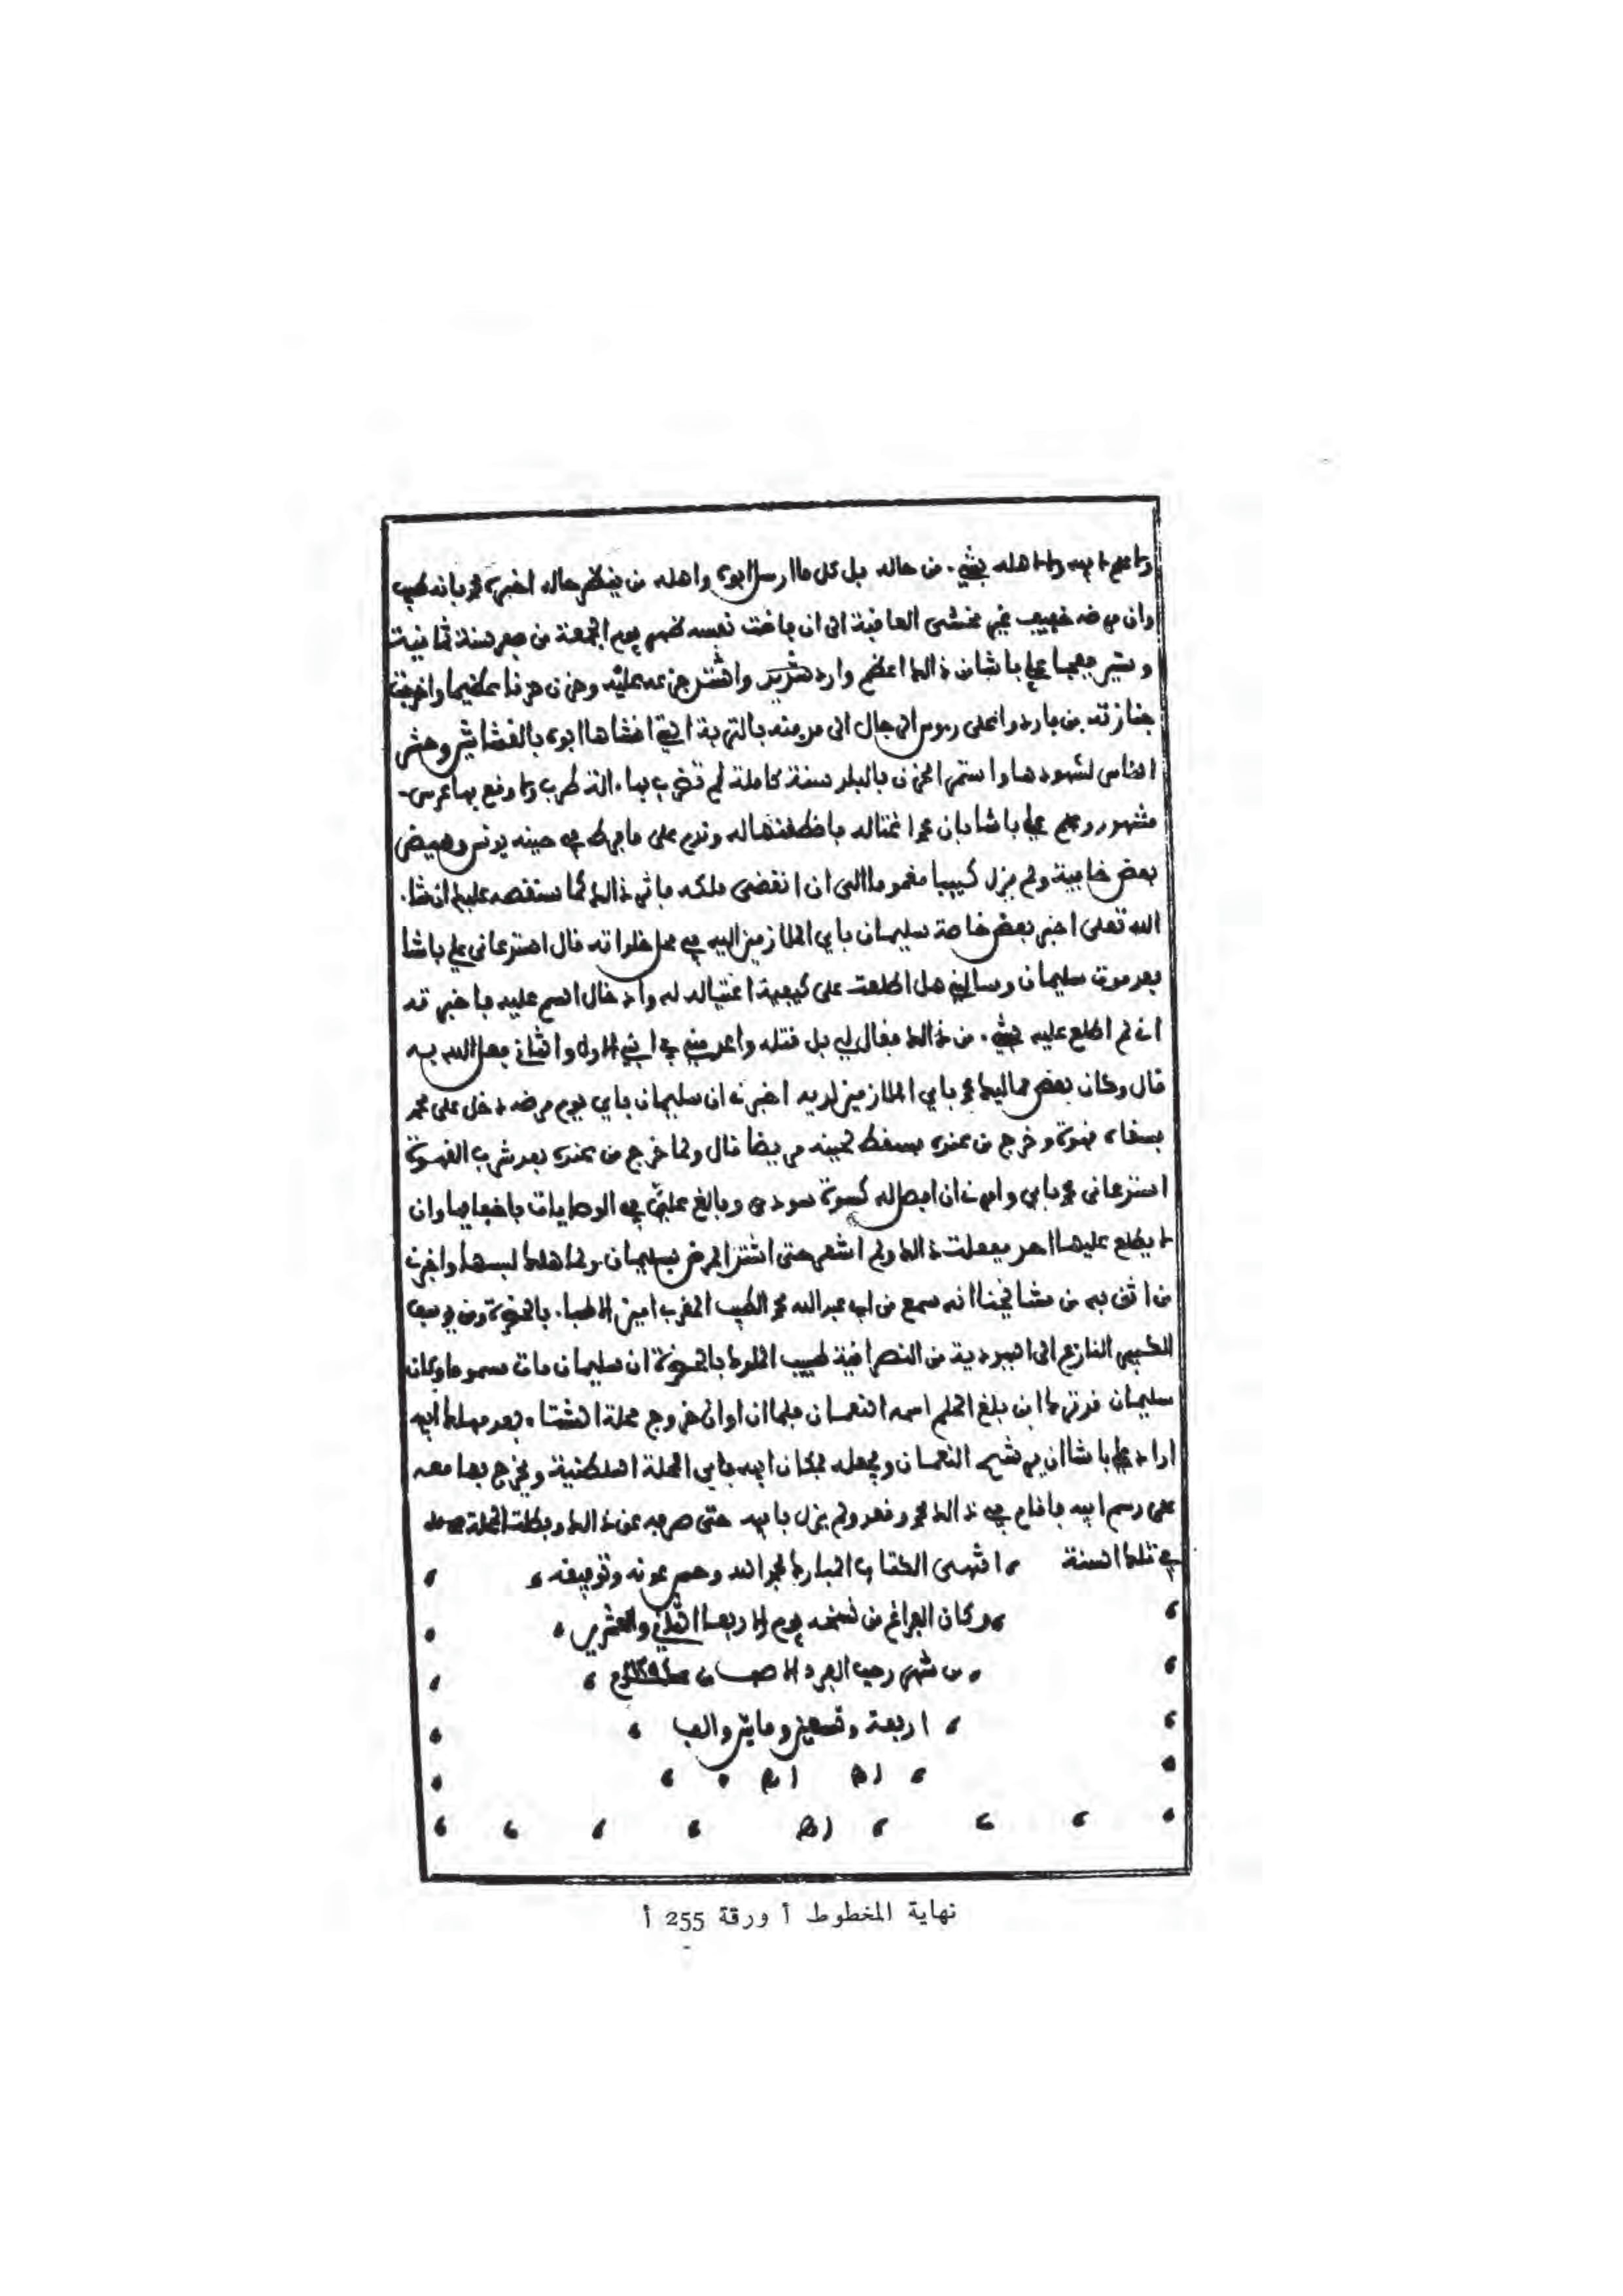 ولا علم لابيه ولا لاهله بشيء من حاله بل كل ما ارسل ابوه واهله من ينظر حاله اخبره محمد بانه طيب
وان مرضه خفيف غير مختشى العاقبة الى ان فاضت نفسه ظهر يوم الجمعة من صفر سنة ثمانية
علي باشا من ذالك اعظم وارد شديد واشتد جزعه عليه وحزن حزنا عظيما واخرجت
جنازته من باردو على رءوس الرجال الى مدفنه بالتربة التي انشاها ابوه بالقشاشين وحشر
الناس لشهودها واستمر الحزن بالبلد سنة كاملة لم تضرب بها ءالة طرب ولا وقع بها عرس
مشهور وعلم علي باشا بان محمدا اغتاله وندم على ما فرط في حينه يونس
بعض خابية ولم يزل كييبا مغموما الى ان انقضى ملكه باثر ذالك كما ستقصه عليك ان شاء
الله تعلى اخبر بعض خاصة سليمان باي الملازمين اليه في محل خلواته قال استدعاني علي باشا
بعد موت سليمان وسالني هل اطلعت على كيفية اغتياله له وادخال السم عليه فاخبرته
اني لم اطلع عليه بشيء من ذالك فقال لي بل قتله واعدمني في ابني الاول والثاني فعل الله به
قال وكان بعض مماليك محمد باي الملازمين لديه اخبرني ان سليمان باي يوم مرضه دخل على محمد
فسقاه قهوة وخرج من عنده فسقط لحينه مريضا قال ولما خرج من عنده بعد شرب القهوة
استدعاني محمد باي وامرني ان افصل له كسوة سودى وبالغ علي في الوصايات باخفايها وان
لا يطلع عليها احد ففعلت ذالك ولم اشعر حتى اشتد المرض بسليمان ولما هلك لبسها واخبرني
من اثق به من مشايخنا انه سمع من ابي عبد الله محمد الطبيب المغرب امين الاطباء بالحضرة ومن يوسف
الطبيب النازع الى اليهودية من النصرانية طبيب الملوك بالحضرة ان سليمان مات مسموما وكان
سليمان قد ترك ابن بلغ الحلم اسمه النعمان فلما ان اوان خروج محلة الشتاء بعد مهلك ابيه
اراد علي باشا ان يرشح النعمان ويجعله بمكان ابيه باي المحلة السلطنية ويخرج بها معه
على رسم ابيه فاقام في ذالك محمد وقعد ولم يزل بابيه حتى صرفه عن ذالك وبطلت المحلة
في تلك السنة انتهى الكتاب المبارك بحمد الله وحسن عونه وتوفيقه
وكان الفراغ من نسخه يوم الاربعا الثاني والعشرين
من شهر رجب الفرد الاصب
اربعة وتسعين ومايتين والف
اه اه
اه
نهاية المخطوط أ ورقة 255 أ